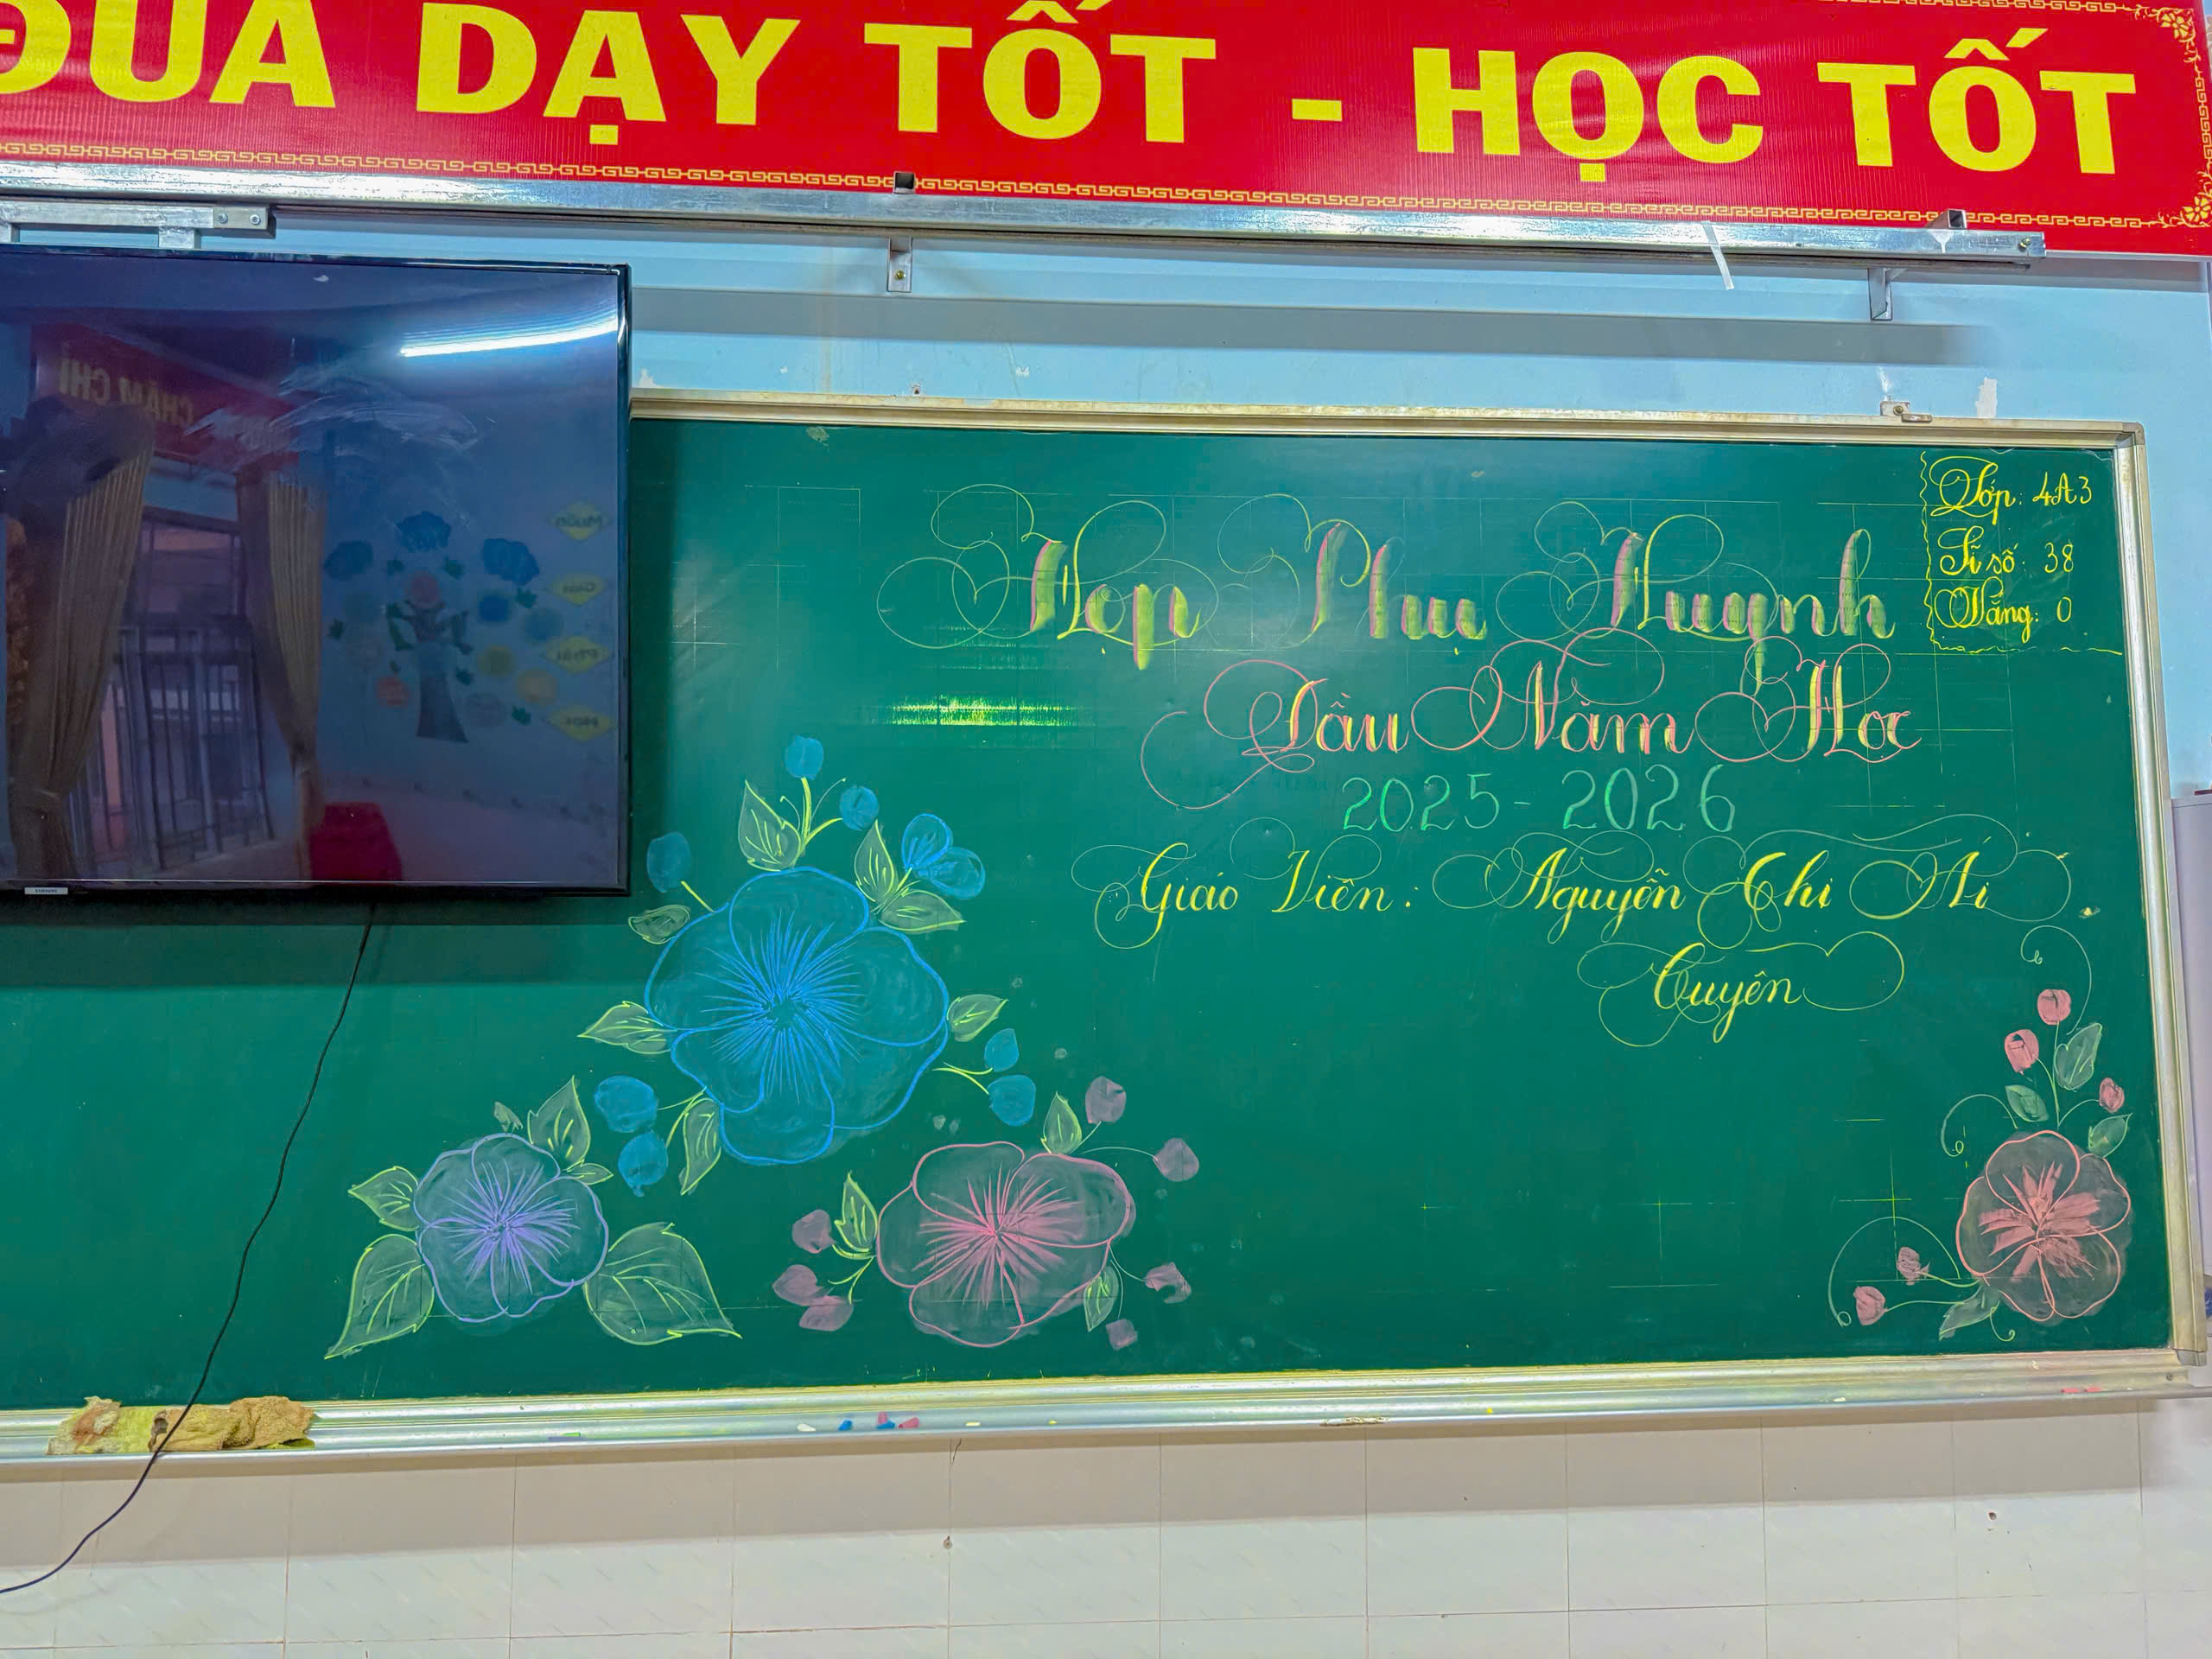 ĐUA DẠY TỐT - HỌC TỐT
Lớp: 4A3
Sĩ số: 38
Vắng: 0
Họp Phụ Huynh
Đầu Năm Học
2025-2026
Giáo Viên: Nguyễn Thị Ái
Tuyên
CHĂM CHỈ
SAMSUNG